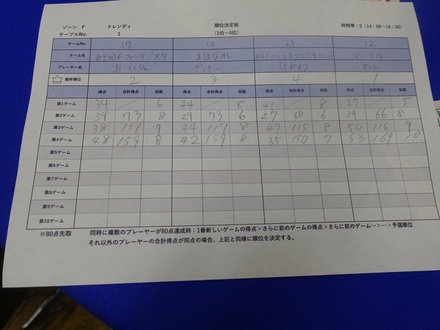 ゾーン F トレンディ 順位決定戦 時間帯:2(14:00~16:00)
テーブルNo. 1 (1位~4位)
チームNo. 17 10 29 12
チーム名
プレーヤー名
最終順位 2 3 4 1
得点 合計得点 枚数 得点 合計得点 枚数 得点 合計得点 枚数 得点 合計得点 枚数
第1ゲーム 34 6 44 8 41 8 27 5
第2ゲーム 39 73 8 29 73 6 27 68 6 39 66 8
第3ゲーム 38 111 7 44 117 9 47 115 8 50 116 9
第4ゲーム 48 159 8 42 159 8 35 150 7 53 169 10
第5ゲーム
第6ゲーム
第7ゲーム
第8ゲーム
第9ゲーム
第10ゲーム
※80点先取 同時に複数のプレーヤーが80点達成時:1番新しいゲームの得点>さらに前のゲームの得点>さらに前のゲーム…>…>予選順位
それ以外のプレーヤーの合計得点が同点の場合、上記と同様に順位を決定する。